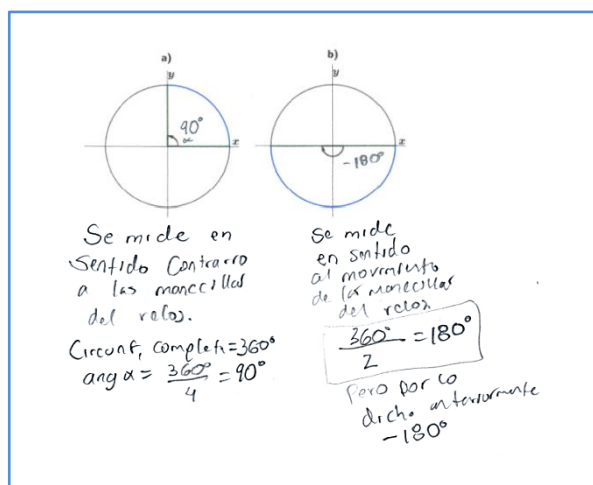 a)
y
90°
α
x
Se mide en
Sentido Contrario
a las manecillas
del reloj.
Circunf, completa=360°
ang α = 360°/4 = 90°
b)
y
x
-180°
Se mide
en sentido
al movimiento
de las manecillas
del reloj
360°/2 = 180°
Pero por lo
dicho anteriormente
-180°